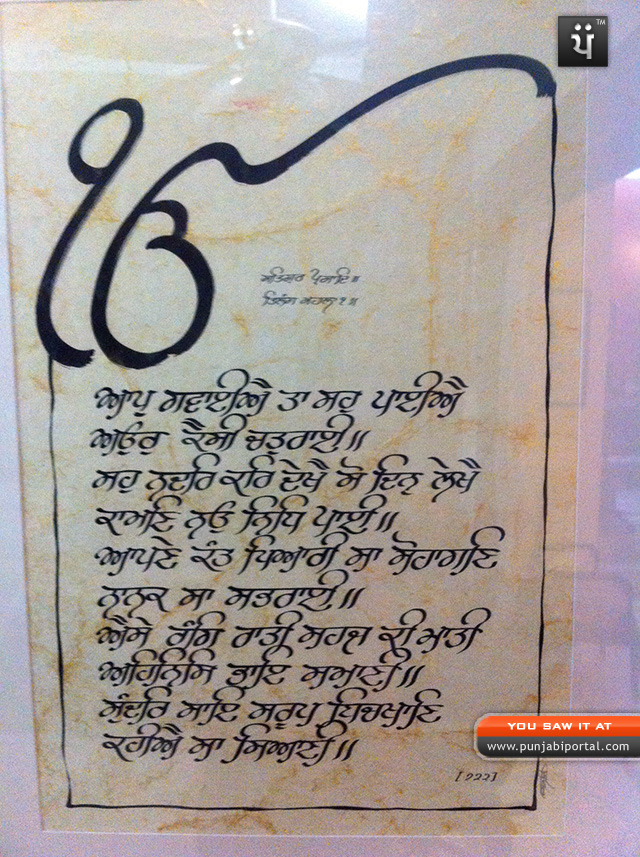 ੴ
ਸਤਿਗੁਰ ਪ੍ਰਸਾਦਿ॥
ਤਿਲੰਗ ਮਹਲਾ ੧॥
ਆਪੁ ਗਵਾਈਐ ਤਾ ਸਹੁ ਪਾਈਐ
ਅਉਰੁ ਕੈਸੀ ਚਤੁਰਾਈ॥
ਸਹੁ ਨਦਰਿ ਕਰਿ ਦੇਖੈ ਸੋ ਦਿਨੁ ਲੇਖੈ
ਕਾਮਣਿ ਨਉ ਨਿਧਿ ਪਾਈ॥
ਆਪਣੇ ਕੰਤ ਪਿਆਰੀ ਸਾ ਸੋਹਾਗਣਿ
ਨਾਨਕ ਸਾ ਸਭਰਾਈ॥
ਐਸੇ ਰੰਗਿ ਰਾਤੀ ਸਹਜ ਕੀ ਮਾਤੀ
ਅਹਿਨਿਸਿ ਭਾਇ ਸਮਾਣੀ॥
ਸੁੰਦਰਿ ਸਾਇ ਸਰੂਪ ਬਿਚਖਣਿ
ਕਹੀਐ ਸਾ ਸਿਆਣੀ॥
[੭੨੨]
ਪੰ ™
YOU SAW IT AT
www.punjabiportal.com